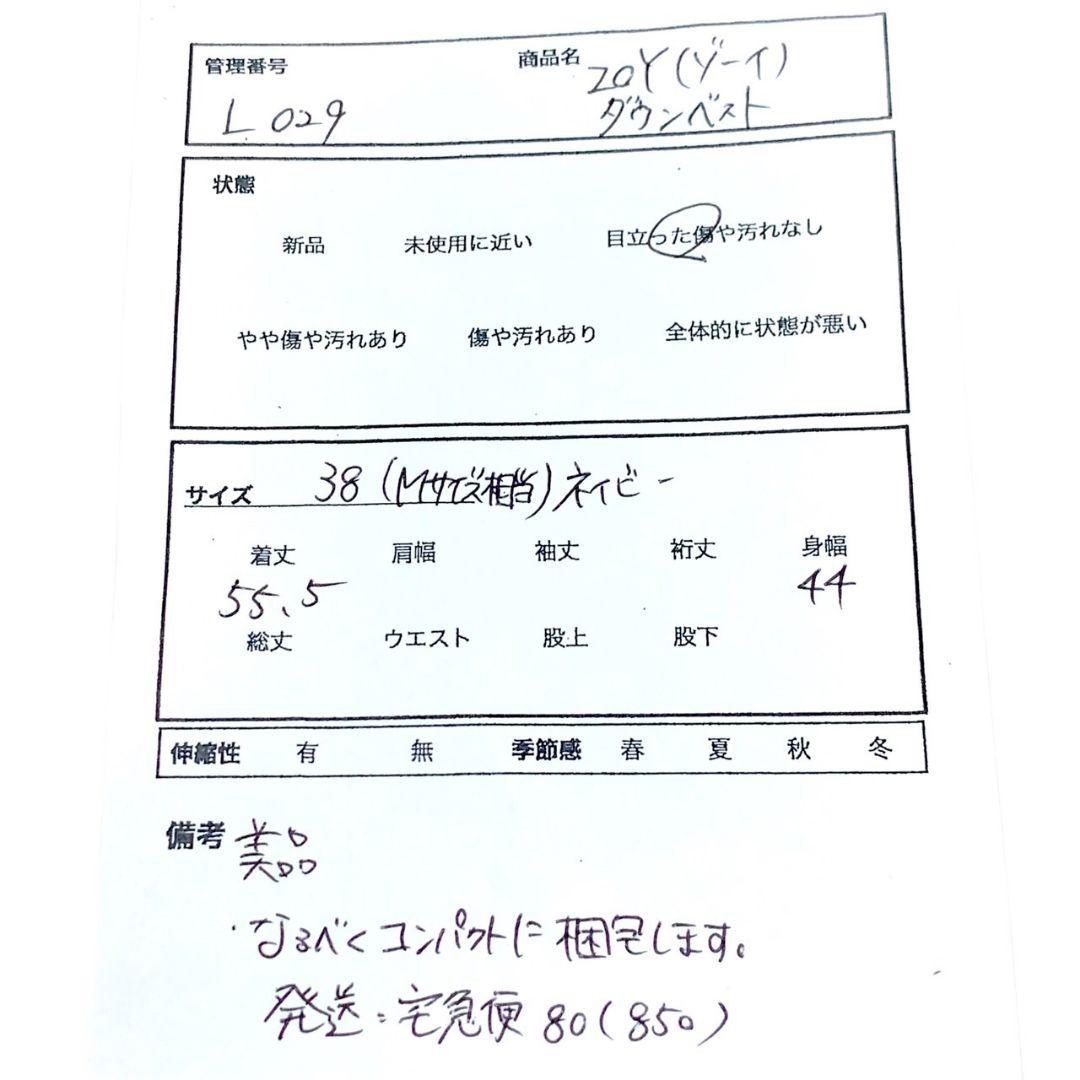 管理番号 商品名 ZOY(ゾーイ)
L 029 ダウンベスト
状態
新品 未使用に近い 目立った傷や汚れなし
やや傷や汚れあり 傷や汚れあり 全体的に状態が悪い
サイズ 38(Mサイズ相当)ネイビー
着丈 肩幅 袖丈 裄丈 身幅
55.5 44
総丈 ウエスト 股上 股下
伸縮性 有 無 季節感 春 夏 秋 冬
備考 美品
・なるべくコンパクトに梱包します。
発送:宅急便80(850)